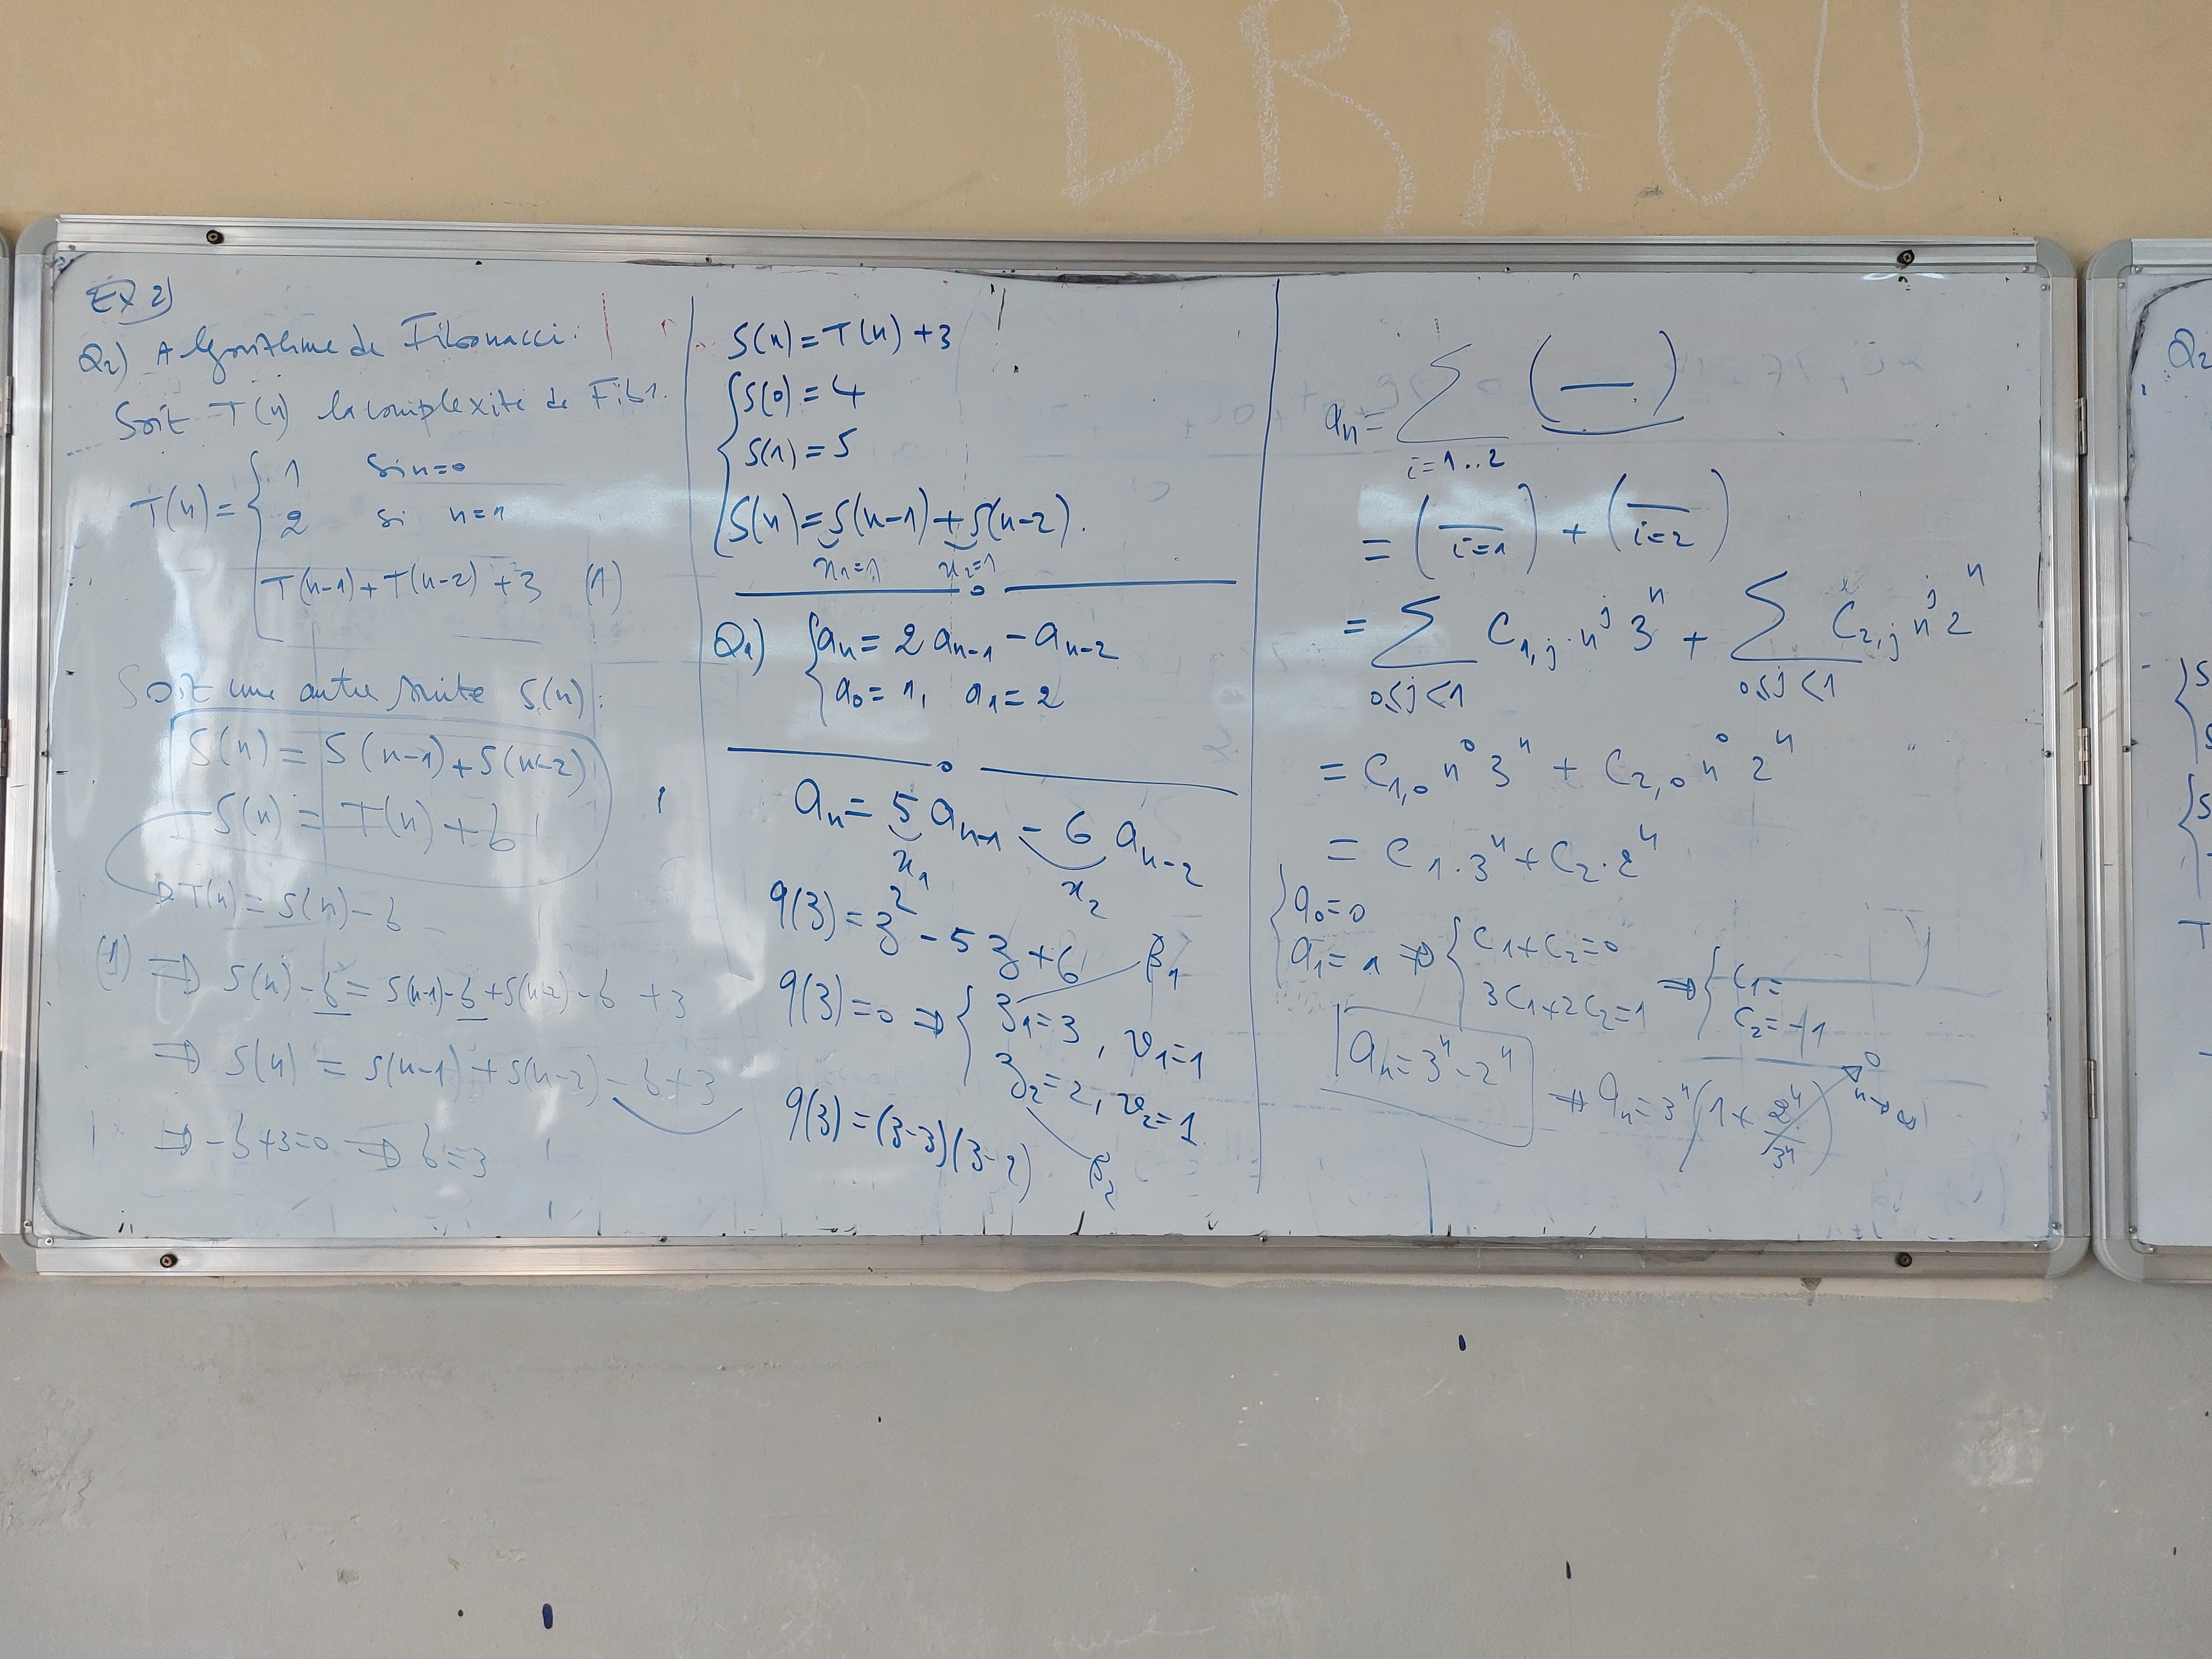 DRAOU
EX 2)
Q2) Algorithme de Fibonacci :
Soit T(n) la complexité de Fib1.
T(n) = { 1 si n=0
2 si n=1
T(n-1) + T(n-2) + 3 (1)
Soit une autre suite S(n) :
S(n) = S(n-1) + S(n-2)
S(n) = T(n) + b
⇒ T(n) = S(n) - b
(1) ⇒ S(n) - b = S(n-1) - b + S(n-2) - b + 3
⇒ S(n) = S(n-1) + S(n-2) - b + 3
⇒ -b + 3 = 0 ⇒ b = 3
S(n) = T(n) + 3
{ S(0) = 4
S(1) = 5
S(n) = S(n-1) + S(n-2).
x₁=1 x₂=1
Q1) { aₙ = 2 aₙ₋₁ - aₙ₋₂
a₀ = 1, a₁ = 2
aₙ = 5 aₙ₋₁ - 6 aₙ₋₂
x₁ x₂
q(z) = z² - 5z + 6
β₁
q(z) = 0 ⇒ { z₁ = 3, v₁ = 1
z₂ = 2, v₂ = 1
q(z) = (z-3)(z-2)
β₂
aₙ = Σ (—)
i=1..2
= (— i=1) + (— i=2)
= Σ C₁,ⱼ · nʲ 3ⁿ + Σ C₂,ⱼ nʲ 2ⁿ
0≤j<1 0≤j<1
= C₁,₀ n⁰ 3ⁿ + C₂,₀ n⁰ 2ⁿ
= C₁ · 3ⁿ + C₂ · 2ⁿ
{ a₀ = 0
a₁ = 1 ⇒ { C₁ + C₂ = 0
3C₁ + 2C₂ = 1 ⇒ { C₁ =
C₂ = -1
aₙ = 3ⁿ - 2ⁿ ⇒ aₙ = 3ⁿ (1 + 2ⁿ/3ⁿ) 0
n→∞
Q2